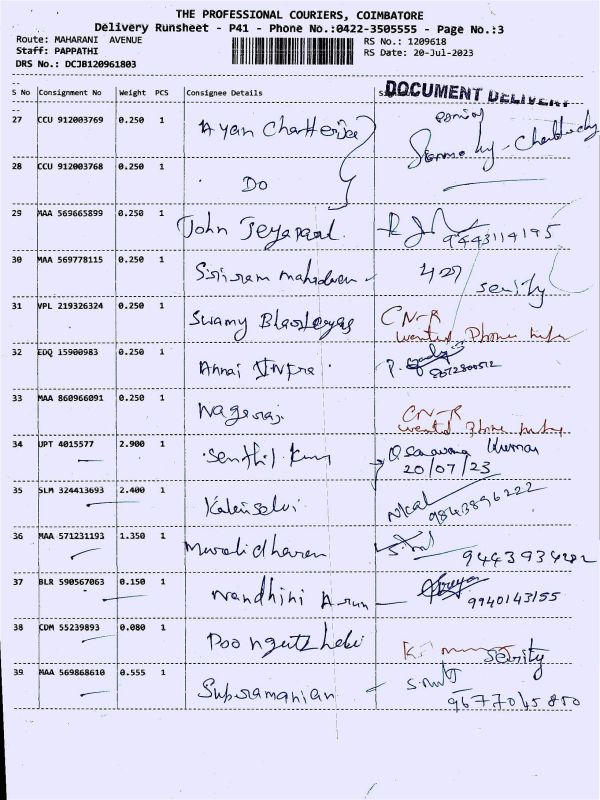 THE PROFESSIONAL COURIERS, COIMBATORE
Delivery Runsheet - P41 - Phone No.:0422-3505555 - Page No.:3
Route: MAHARANI AVENUE RS No.: 1209618
Staff: PAPPATHI RS Date: 20-Jul-2023
DRS No.: DCJB120961803
DOCUMENT DELIVERY
S No Consignment No Weight PCS Consignee Details
27 CCU 912003769 0.250 1 Ayan Chatterjee
28 CCU 912003768 0.250 1 Do
29 MAA 569665899 0.250 1 John Jeyapaul. 9443114195
30 MAA 569778115 0.250 1 Sriram mahadevan 427 serity
31 VPL 219326324 0.250 1 Swamy CN-R
wanted Phone
32 EDQ 15900983 0.250 1 Annai Infra. P.
33 MAA 860966091 0.250 1 Nagaraj CN-R
wanted Phone
34 UPT 4015577 2.900 1 Senthil Kumar
20/07/23
35 SLM 324413693 2.400 1 Kalaiselvi 9843896222
36 MAA 571231193 1.350 1 Muralidharan
37 BLR 590567063 0.150 1 Nandhini Arun 9940143155
38 CDM 55239893 0.080 1 Poongutzhali serity
39 MAA 569868610 0.555 1 Subramanian
9677045850